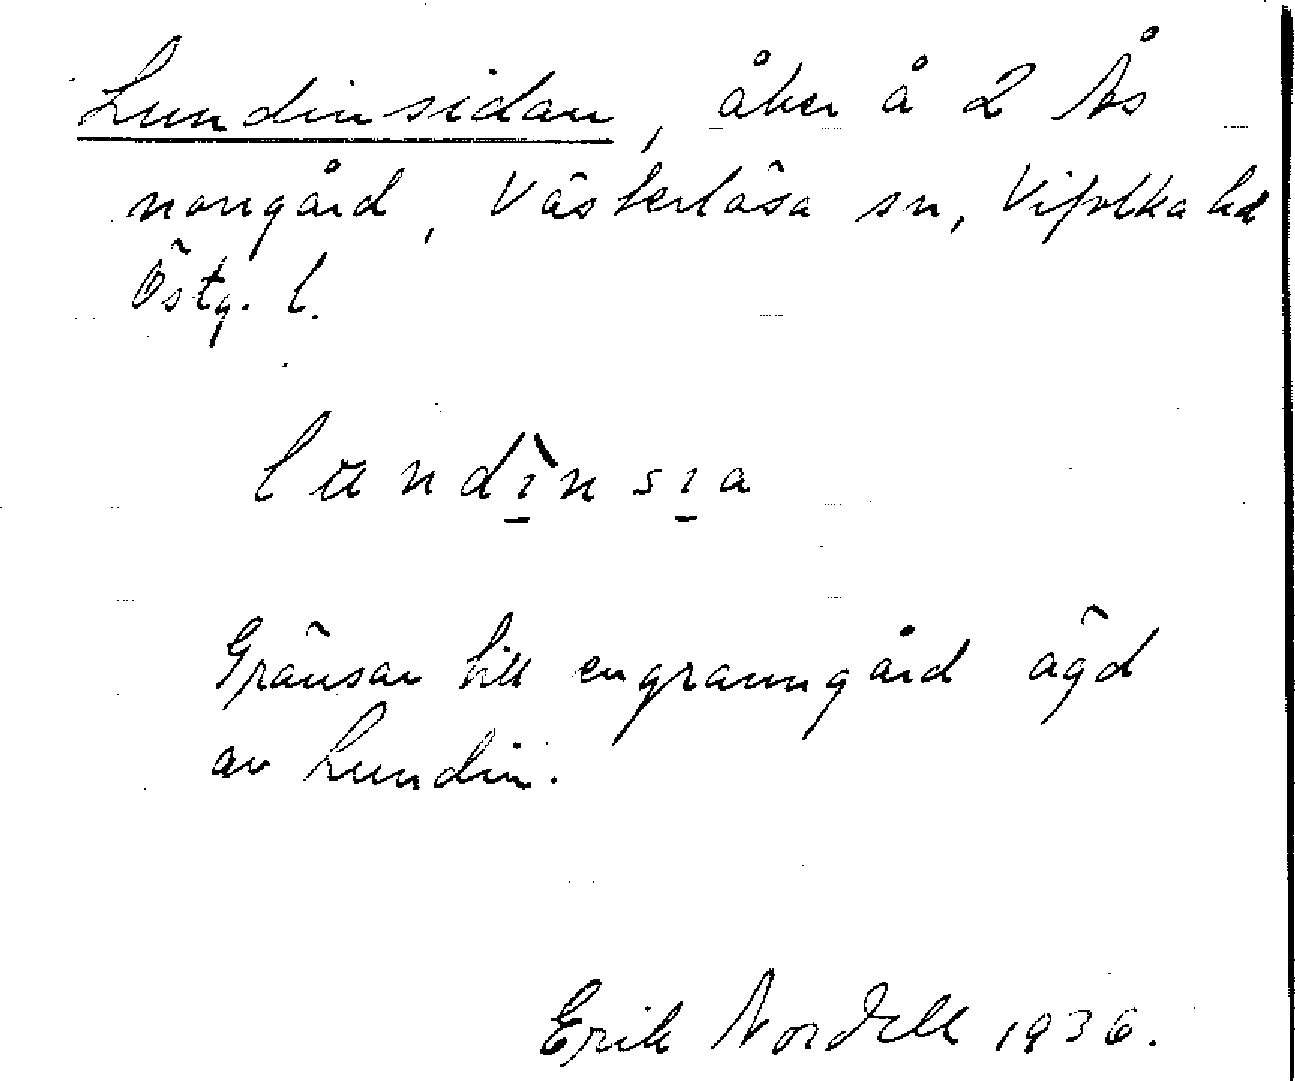 Lundinsidan, åker å 2 Ås
norrgård, Västerlösa sn, Vifolka hd
Östg. l.
lundìnsia
Gränsar till en granngård ägd
av Lundin.
Erik Nordell 1936.